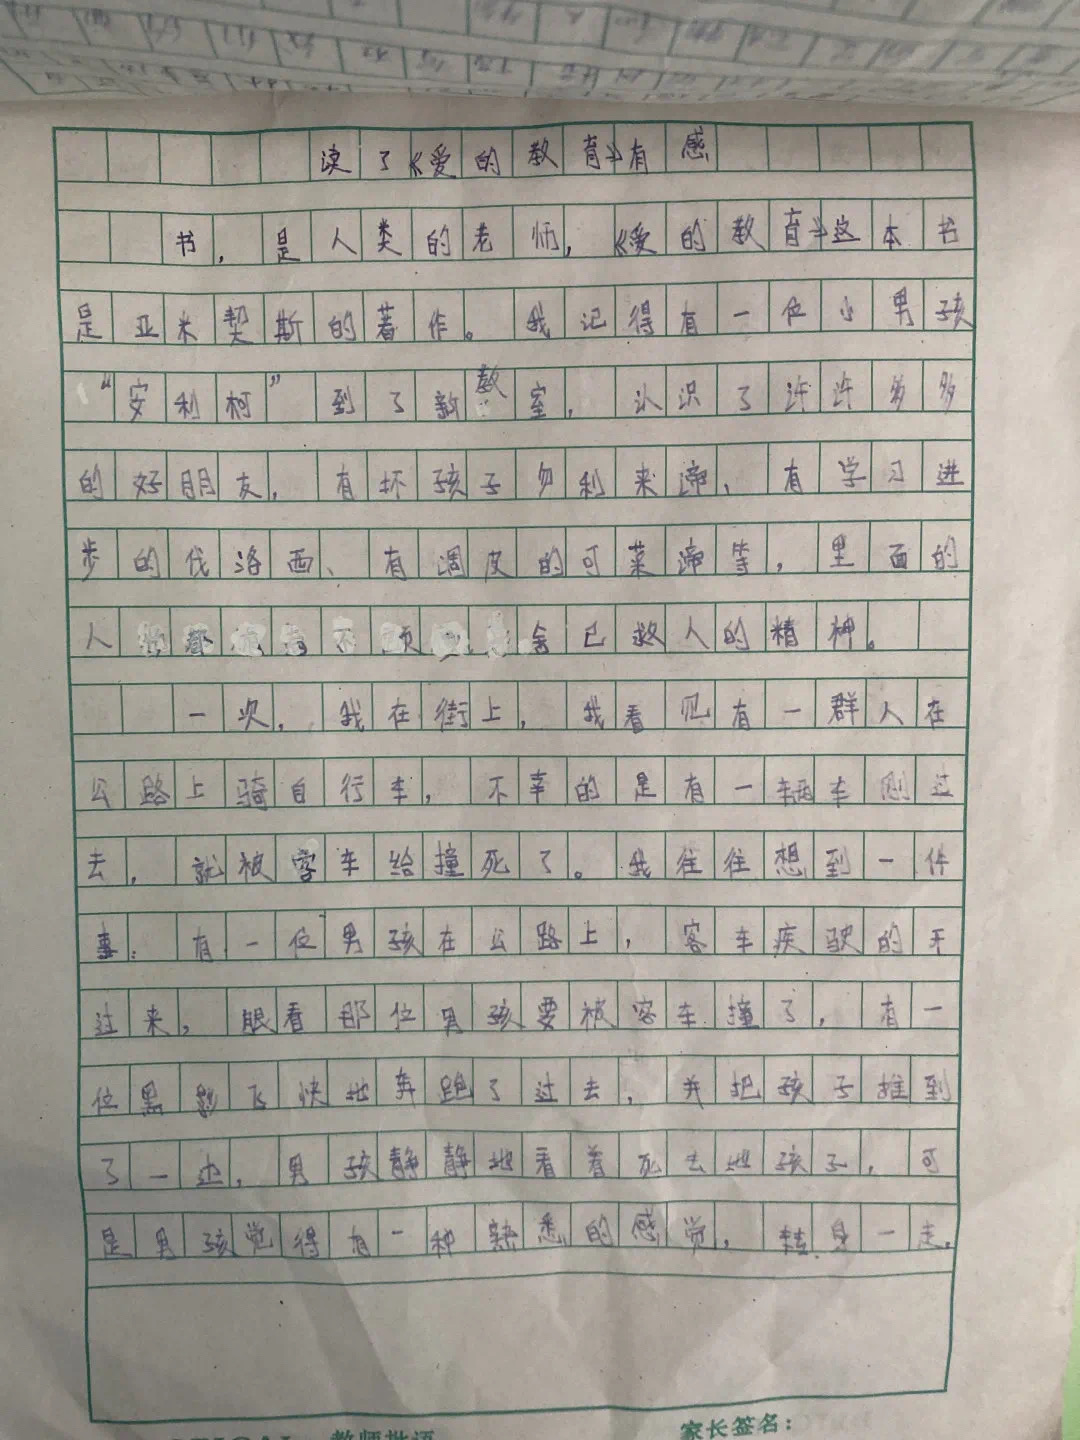 读了《爱的教育》有感
书，是人类的老师，《爱的教育》这本书
是亚米契斯的著作。我记得有一位小男孩
“安利柯”到了新教室，认识了许许多多
的好朋友，有坏孩子勿利来谛、有学习进
步的伐洛西、有调皮的可莱谛等，里面的
人 舍己救人的精神。
一次，我在街上，我看见有一群人在
公路上骑自行车，不幸的是有一辆车刚过
去，就被客车给撞死了。我往往想到一件
事：有一位男孩在公路上，客车疾驶的开
过来，眼看那位男孩要被客车撞了，有一
位黑影飞快地奔跑了过去，并把孩子推到
了一边，男孩静静地看着死去地孩子，可
是男孩觉得有一种熟悉的感觉，转身一走，
教师批语
家长签名：